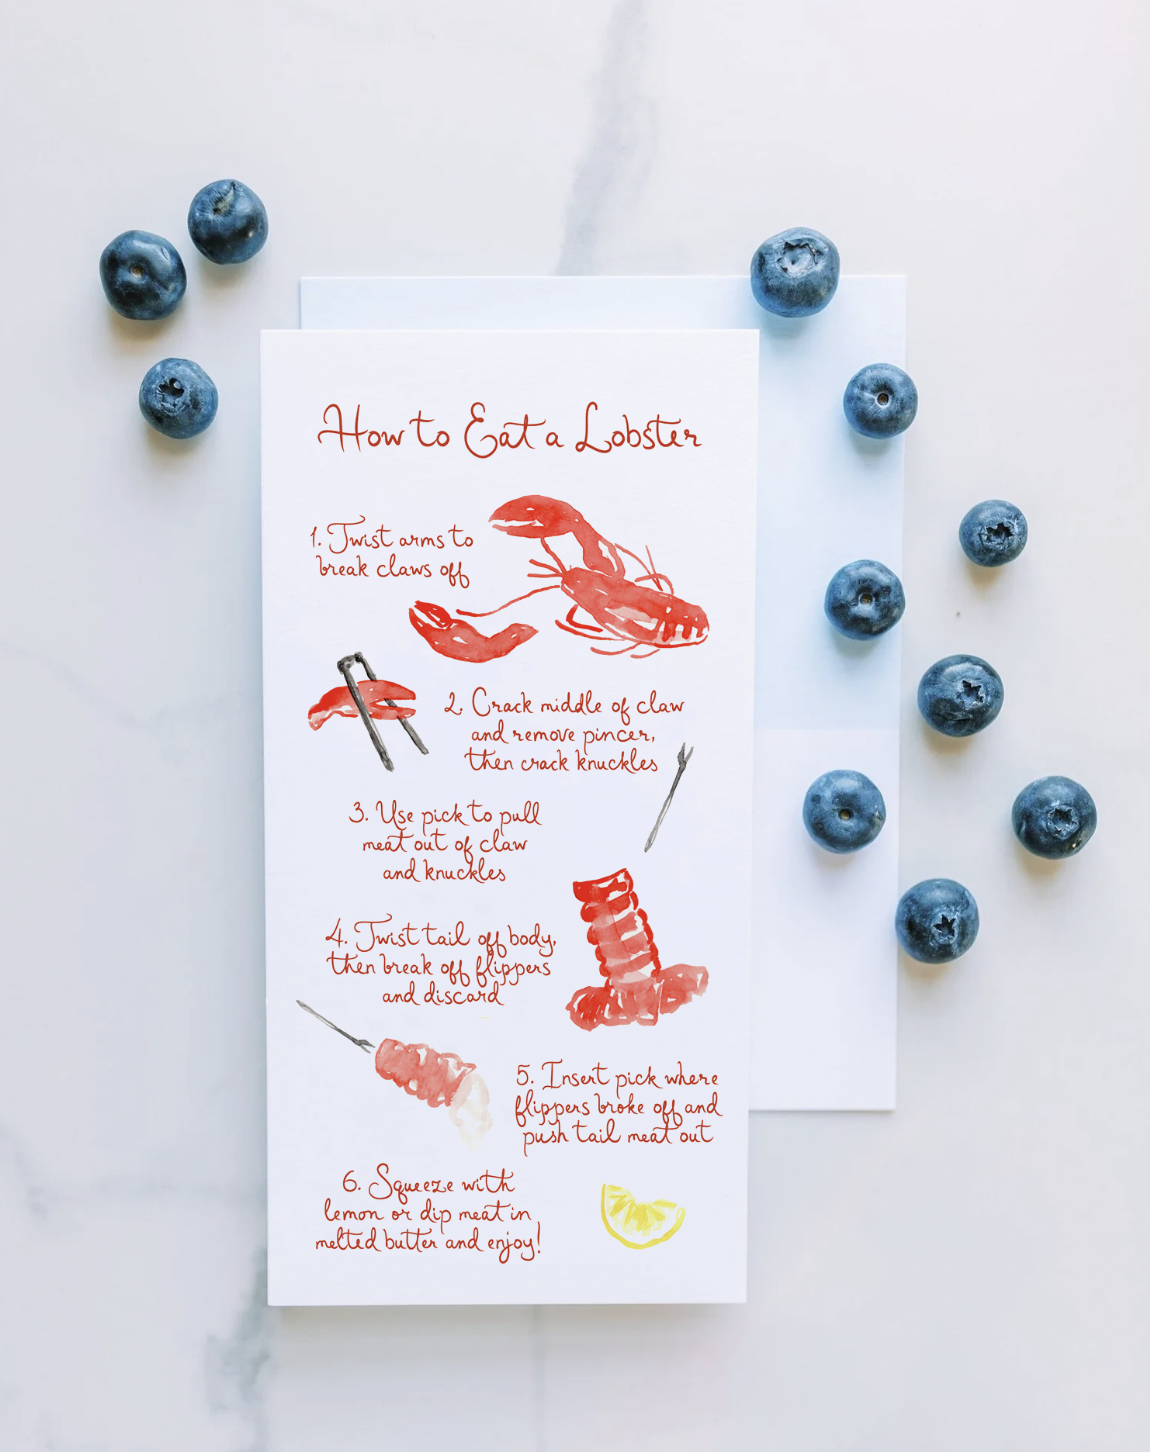 How to Eat a Lobster
1. Twist arms to
break claws off
2. Crack middle of claw
and remove pincer,
then crack knuckles
3. Use pick to pull
meat out of claw
and knuckles
4. Twist tail off body,
then break off flippers
and discard
5. Insert pick where
flippers broke off and
push tail meat out
6. Squeeze with
lemon or dip meat in
melted butter and enjoy!